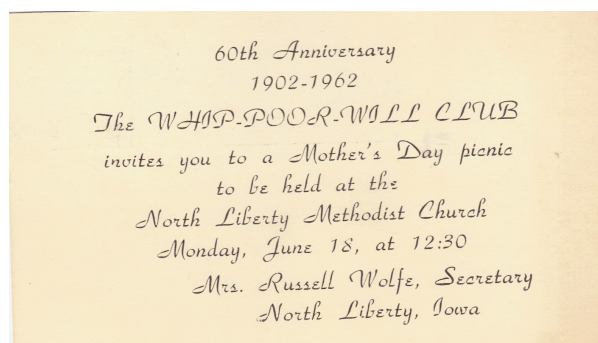 60th Anniversary
1902-1962
The WHIP-POOR-WILL CLUB
invites you to a Mother's Day picnic
to be held at the
North Liberty Methodist Church
Monday, June 18, at 12:30
Mrs. Russell Wolfe, Secretary
North Liberty, Iowa